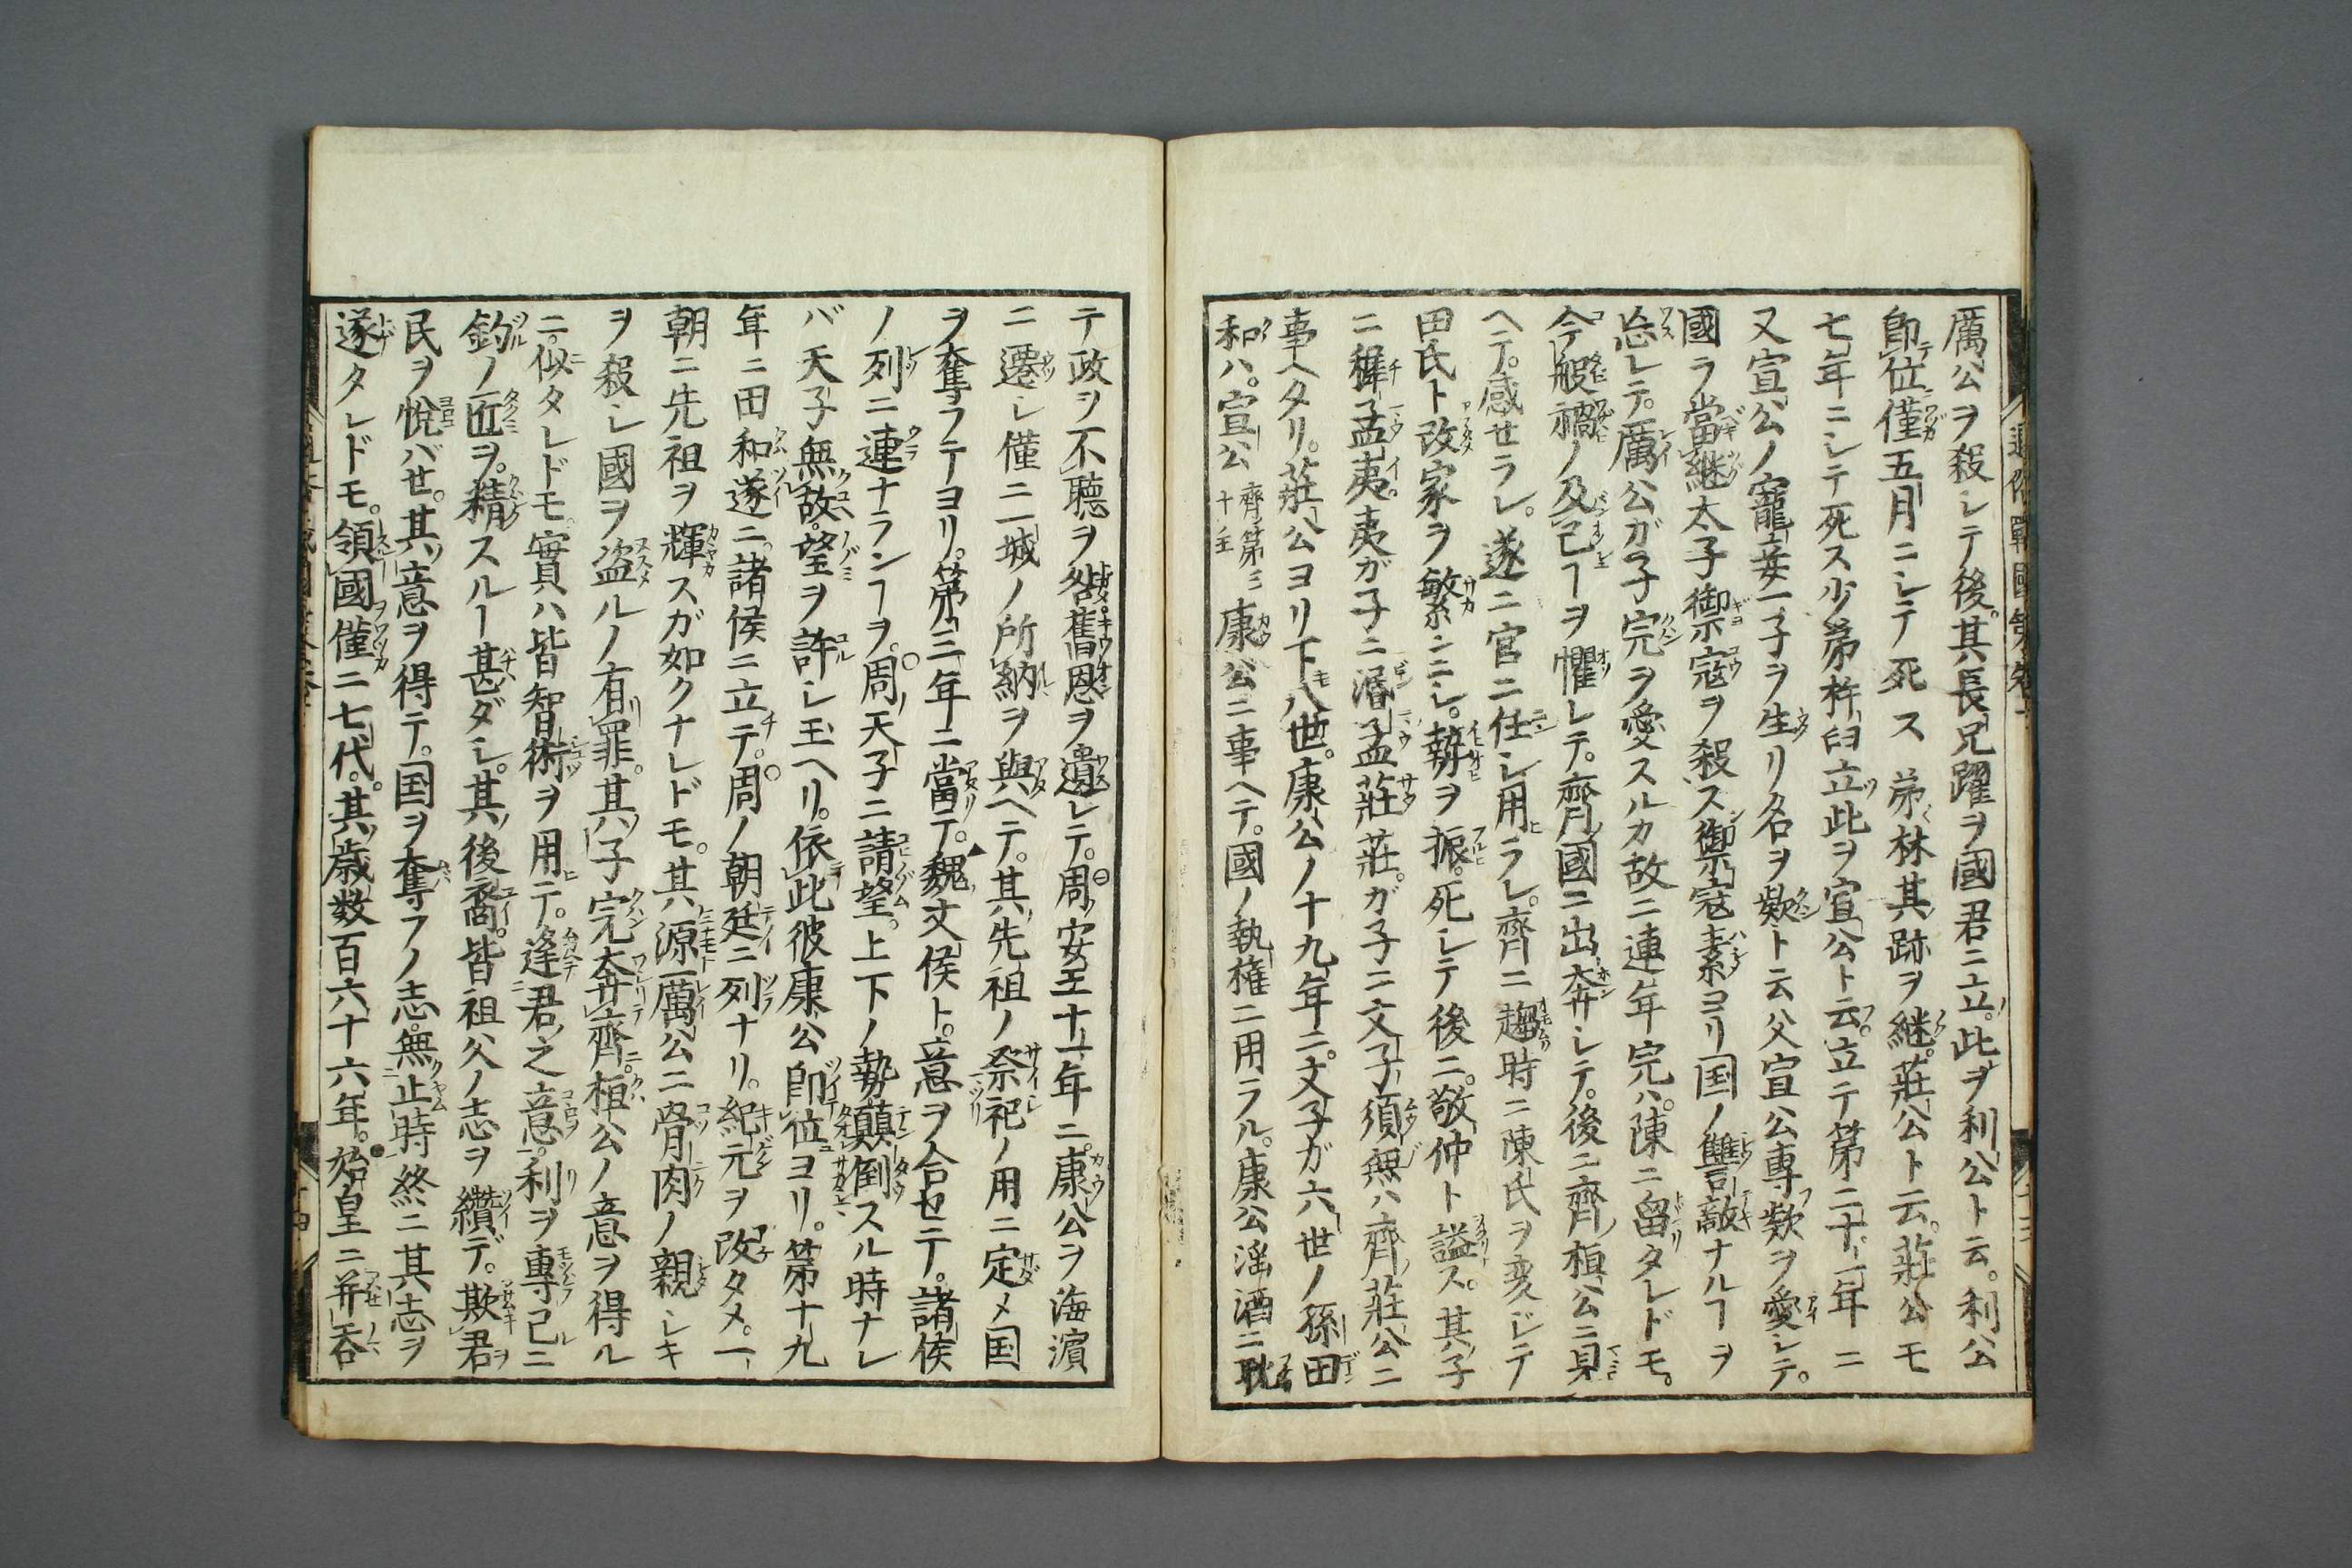 厲公ヲ殺レテ後。其長兄躍ヲ國君ニ立。此ヲ利公ト云。利公
即位僅五月ニレテ死ス弟林其跡ヲ継。莊公ト云。莊公モ
七年ニレテ死ス少弟杵臼立此ヲ宣公ト云。立テ第二十一年ニ
又宣公ノ寵妾一子ヲ生リ名ヲ款ト云父宣公專款ヲ愛レテ。
國ヲ當継太子禦寇ヲ殺ス禦寇素ヨリ国ノ讐敵ナルヿヲ
忘レテ。厲公ガ子完ヲ愛スルカ故ニ連年完ハ。陳ニ留タレドモ。
今般禍ノ及己ヿヲ懼レテ。齊國ニ出奔レテ。後ニ齊桓公ニ見
ヘテ。感セラレ。遂ニ官ニ任レ用ラレ。齊ニ趨時ニ陳氏ヲ変ジテ
田氏ト改家ヲ繁ンニレ。勢ヲ振。死レテ後ニ。敬仲ト謚ス。其子
ニ穉孟夷。夷ガ子ニ湣孟莊莊。ガ子ニ文子須無ハ齊莊公ニ
事ヘタリ。莊公ヨリ下八世。康公ノ十九年ニ。文子ガ六世ノ孫田
和ハ。宣公齊第三十主康公ニ事ヘテ。國ノ執權ニ用ラル。康公淫酒ニ耽
テ政ヲ不聴ヲ舊恩ヲ遺レテ。周安王十一年ニ。康公ヲ海濱
ニ遷レ僅ニ一城ノ所納ヲ與ヘテ。其先祖ノ祭祀ノ用ニ定メ国
ヲ奪フテヨリ。第三年ニ當テ。魏文侯ト。意ヲ合セテ。諸侯
ノ列ニ連ナランヿヲ。周天子ニ請望。上下ノ勢顛倒スル時ナレ
バ天子無故。望ヲ許レ玉ヘリ。依此彼康公即位ヨリ。第十九
年ニ田和遂ニ。諸侯ニ立テ。周ノ朝廷ニ列ナリ。紀元ヲ改タメ。一
朝ニ先祖ヲ輝スガ如クナレドモ。其源厲公ニ骨肉ノ親レキ
ヲ殺レ國ヲ盗ルノ有罪。其子完奔齊桓公ノ意ヲ得ル
ニ。似タレドモ。實ハ皆智術ヲ用テ。逢君之意。利ヲ專己ニ
釣ノ匠ヲ。精スルヿ甚ダレ。其後裔。皆祖父ノ志ヲ纉デ。欺君
民ヲ悅バセ。其意ヲ得テ。国ヲ奪フノ志。無止時終ニ其志ヲ
遂タレドモ。領國僅ニ七代。其歳数百六十六年。始皇ニ并呑